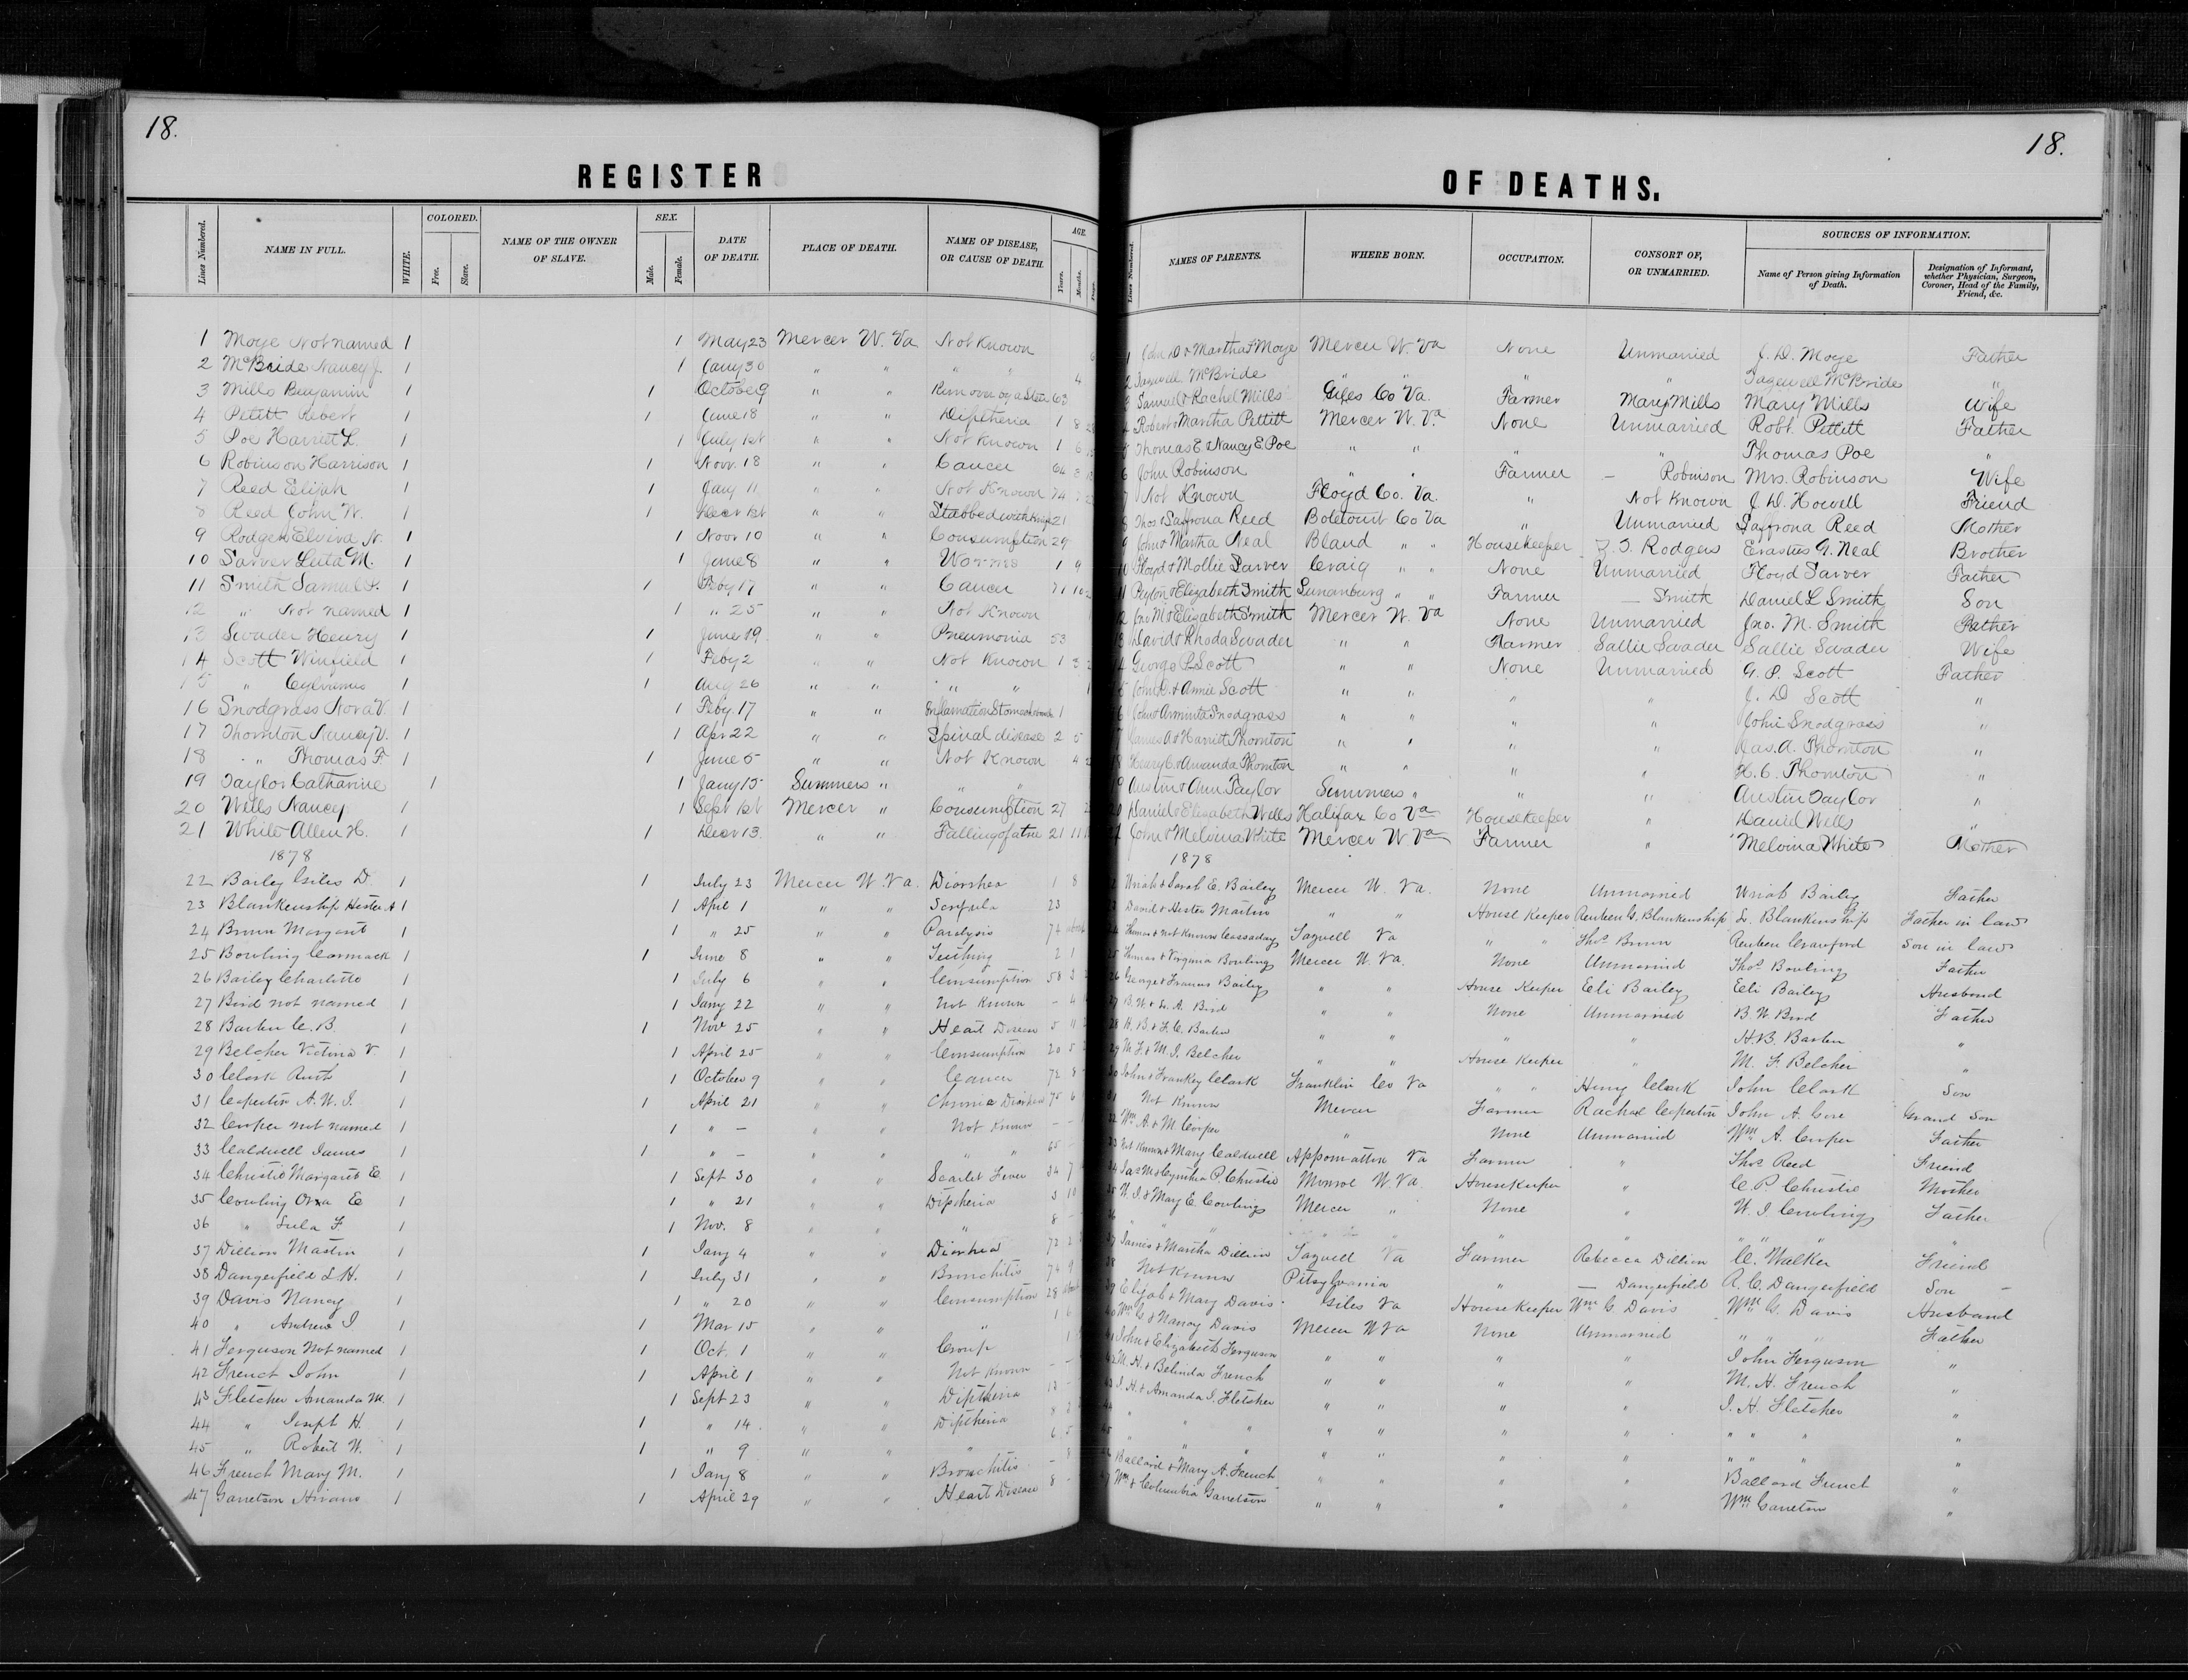 18.
18.
REGISTER OF DEATHS.
Lines Numbered. NAME IN FULL. WHITE. COLORED. Free. Slave. NAME OF THE OWNER OF SLAVE. SEX. Male. Female. DATE OF DEATH. PLACE OF DEATH. NAME OF DISEASE, OR CAUSE OF DEATH. AGE. Years. Months. Days. Lines Numbered. NAMES OF PARENTS. WHERE BORN. OCCUPATION. CONSORT OF, OR UNMARRIED. SOURCES OF INFORMATION. Name of Person giving Information of Death. Designation of Informant, whether Physician, Surgeon, Coroner, Head of the Family, Friend, &c.
1 Moye Not named 1 1 May 23 Mercer W. Va Not Known 1 John D & Martha F Moye Mercer W. Va None Unmarried J. D. Moye Father
2 McBride Nancy J. 1 1 Jany 30 " " " " 4 2 Tazewell McBride " " " " Tazewell McBride "
3 Mills Benjamin 1 1 October 9 " " Run over by a 63 3 Samuel & Rachel Mills Giles Co Va. Farmer Mary Mills Mary Mills Wife
4 Petitt Robert 1 1 June 18 " " Diptheria 1 8 4 Robert & Martha Pettitt Mercer W. Va None Unmarried Robt. Pettitt Father
5 Poe Harriet L. 1 1 July 1st " " Not Known 1 6 5 Thomas E & Nancy E Poe " " " " Thomas Poe "
6 Robinson Harrison 1 1 Novr. 18 " " Cancer 64 6 John Robinson " " Farmer – Robinson Mrs. Robinson Wife
7 Reed Elijah 1 1 Jany 11 " " Not Known 74 7 Not Known Floyd Co. Va. " Not Known J. D. Howell Friend
8 Reed John W. 1 1 Decr 1st " " Stabbed with Knife 21 8 Thos & Saffrona Reed Botetourt Co Va " Unmarried Saffrona Reed Mother
9 Rodgers Elvira N. 1 1 Novr 10 " " Consumption 29 9 John & Martha Neal Bland " " Housekeeper Rodgers Erastus G. Neal Brother
10 Sarver Leita M. 1 1 June 8 " " Worms 1 9 10 Floyd & Mollie Sarver Craig " " None Unmarried Floyd Sarver Father
11 Smith Samuel P. 1 1 Feby 17 " " Cancer 71 10 11 Peyton & Elizabeth Smith Lunanburg " " Farmer – Smith Daniel L Smith Son
12 " Not named 1 1 " 25 " " Not Known 12 Jno M & Elizabeth Smith Mercer W. Va None Unmarried Jno. M. Smith Father
13 Swader Henry 1 1 June 19 " " Pneumonia 53 13 David & Rhoda Swader " " Farmer Sallie Swader Sallie Swader Wife
14 Scott Winfield 1 1 Feby 2 " " Not Known 1 3 14 George P Scott " " None Unmarried G. P. Scott Father
15 " 1 1 Aug 26 " " " " 15 John D. & Annie Scott " " " " J. D Scott "
16 Snodgrass Nora V. 1 1 Feby. 17 " " Inflamation Stomach 1 16 John & Arminta Snodgrass " " " " John Snodgrass "
17 Thornton Nancy V. 1 1 Apr 22 " " Spinal disease 2 5 17 James A & Harriet Thornton " " " " Jas. A. Thornton "
18 " Thomas F. 1 1 June 5 " " Not Known 4 18 Henry C. & Amanda Thornton " " " " H. C. Thornton "
19 Taylor Catharine 1 1 Jany 15 Summers " " " 19 Austin & Ann Taylor Summers " " " Austin Taylor "
20 Wells Nancy 1 1 Sept 1st Mercer " Consumption 27 20 Daniel & Elisabeth Wells Halifax Co Va Housekeeper " Daniel Wells "
21 White Allen H. 1 1 Decr 13. " " Falling of a tree 21 11 21 John & Melvina White Mercer W. Va Farmer " Melvina White Mother
1878 1878
22 Bailey Giles D. 1 1 July 23 Mercer W. Va. Diorrhea 1 8 Uriah & Sarah E. Bailey Mercer W. Va. None Unmarried Uriah Bailey Father
23 Blankenship Hester A 1 1 Aprl 1 " " Scrofula 23 23 David & Hester Martin " " House Keeper Reuben G. Blankenship Blankenship Father in law
24 Brown Margaret 1 1 " 25 " " Paralysis 74 24 Thomas & not known Cassaday Tazwell Va " " Thos Brown Reuben Crawford Son in law
25 Bowling Cormack 1 1 June 8 " " Teething 2 1 25 Thomas & Virginia Bowling Mercer W. Va. None Unmarried Thos. Bowling Father
26 Bailey Charlotte 1 1 July 6 " " Consumption 58 3 26 George & Frances Bailey " " House Keeper Eli Bailey Eli Bailey Husband
27 Bird not named 1 1 Jany 22 " " Not Known - 4 27 B. W. & A. Bird " " None Unmarried B. W. Bird Father
28 Barber C. B. 1 1 Nov 25 " " Heart Disease 5 11 28 H. B. & F. C. Barber " " " " H. B. Barber "
29 Belcher Victoria V. 1 1 April 25 " " Consumption 20 5 29 M. F. & M. J. Belcher " " House Keeper " M. F. Belcher "
30 Clark Ruth 1 1 October 9 " " Cancer 72 8 30 John & Frankey Clark Franklin Co Va " " Henry Clark John Clark Son
31 Caperton A. W. J. 1 1 April 21 " " Chronic Diorhea 75 6 31 Not Known Mercer Farmer Rachel Caperton John A. Grand Son
32 Cooper not named 1 1 " - " " Not Known - - 32 Wm A. & M Cooper " None Unmarried Wm A. Cooper Father
33 Caldwell James 1 1 " - " " " " 65 - 33 Not Known & Mary Caldwell Appomattox Va Farmer " Thos Reed Friend
34 Christie Margaret E. 1 1 Sept 30 " " Scarlet Fever 34 7 34 Jas M & Cynthia P. Christie Monroe W. Va. Housekeeper " C. P. Christie Mother
35 Cowling Orxa E 1 1 " 21 " " Diptheria 3 10 35 W. J. & Mary E Cowling Mercer " None " W. J. Cowling Father
36 " Lula F 1 1 Nov. 8 " " " 8 - 36 " " " " " " " "
37 Dillion Mastin 1 1 Jany 4 " " Diorhea 72 2 37 James & Martha Dillion Tazwell Va Farmer Rebecca Dillion C. Walker Friend
38 Dangerfield L H. 1 1 July 31 " " Bronchitis 74 9 38 Not Known Pitsylvania " – Dangerfield R. C. Dangerfield Son
39 Davis Nancy 1 1 " 20 " " Consumption 28 39 Elijah & Mary Davis Giles Va Housekeeper Wm G Davis Wm G. Davis Husband
40 " Andrew J. 1 1 Mar 15 " " " 1 6 40 Wm G. & Nancy Davis Mercer W Va None Unmarried " " " Father
41 Ferguson Not named 1 1 Oct. 1 " " Croup 41 John & Elizabeth Ferguson " " " " John Ferguson "
42 French John 1 1 April 1 " " Not Known - - 42 M. H. & Belinda French " " " " M. H. French "
43 Fletcher Amanda M. 1 1 Sept 23 " " Diptheria 13 - 43 J. H. & Amanda J. Fletcher " " " " J. H. Fletcher "
44 " Joseph H. 1 1 " 14 " " Diptheria 8 2 44 " " " " " " " " " " "
45 " Robert W. 1 1 " 9 " " " 6 5 45 " " " " " " " " " " "
46 French Mary M. 1 1 Jany 8 " " Bronchitis - 8 46 Ballard & Mary A. French " " " " Ballard French "
47 Garretson Hiram 1 1 April 29 " " Heart Disease 8 - 47 Wm & Columbia Garretson " " " " Wm "